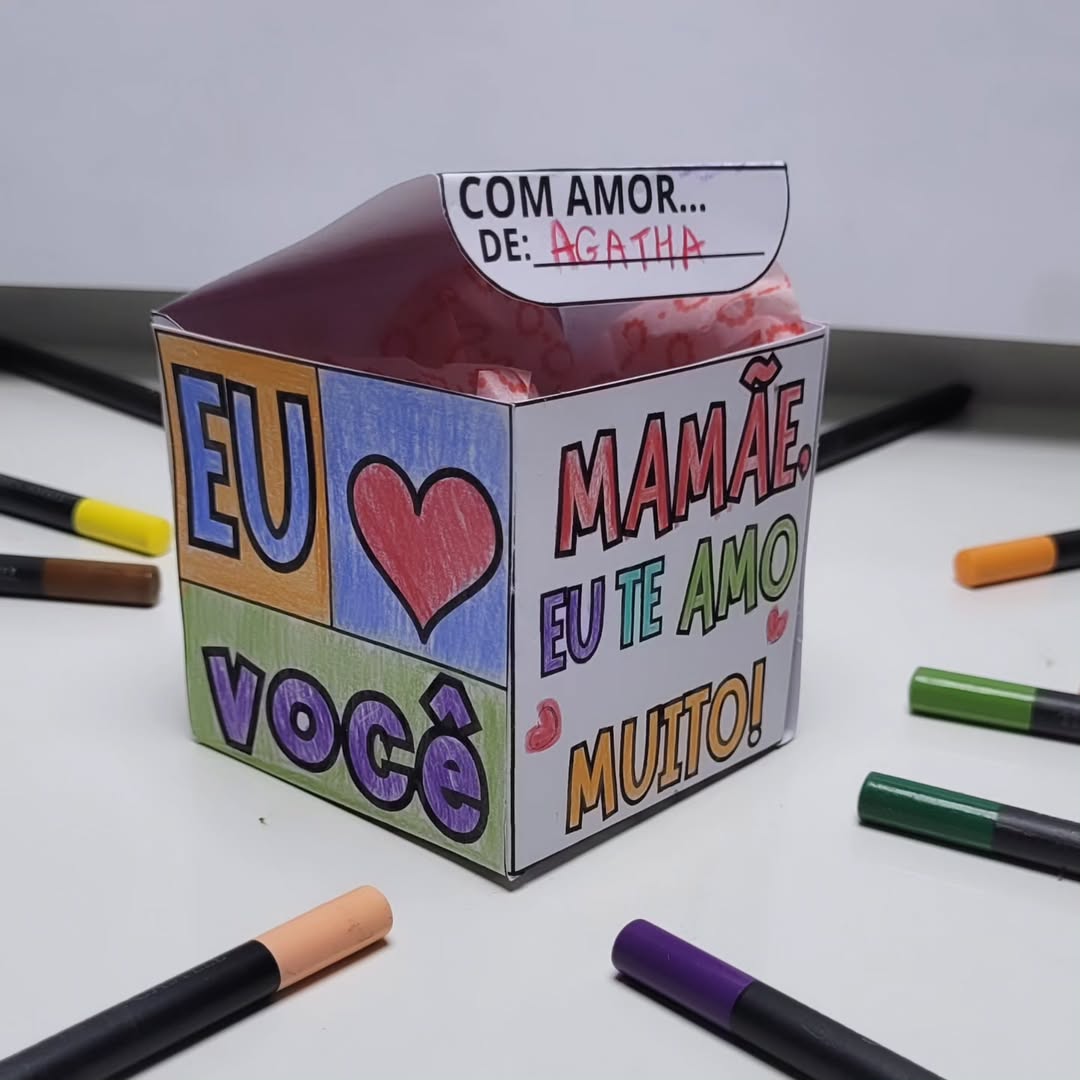 COM AMOR...
DE: AGATHA
EU
VOCÊ
MAMÃE,
EU TE AMO
MUITO!